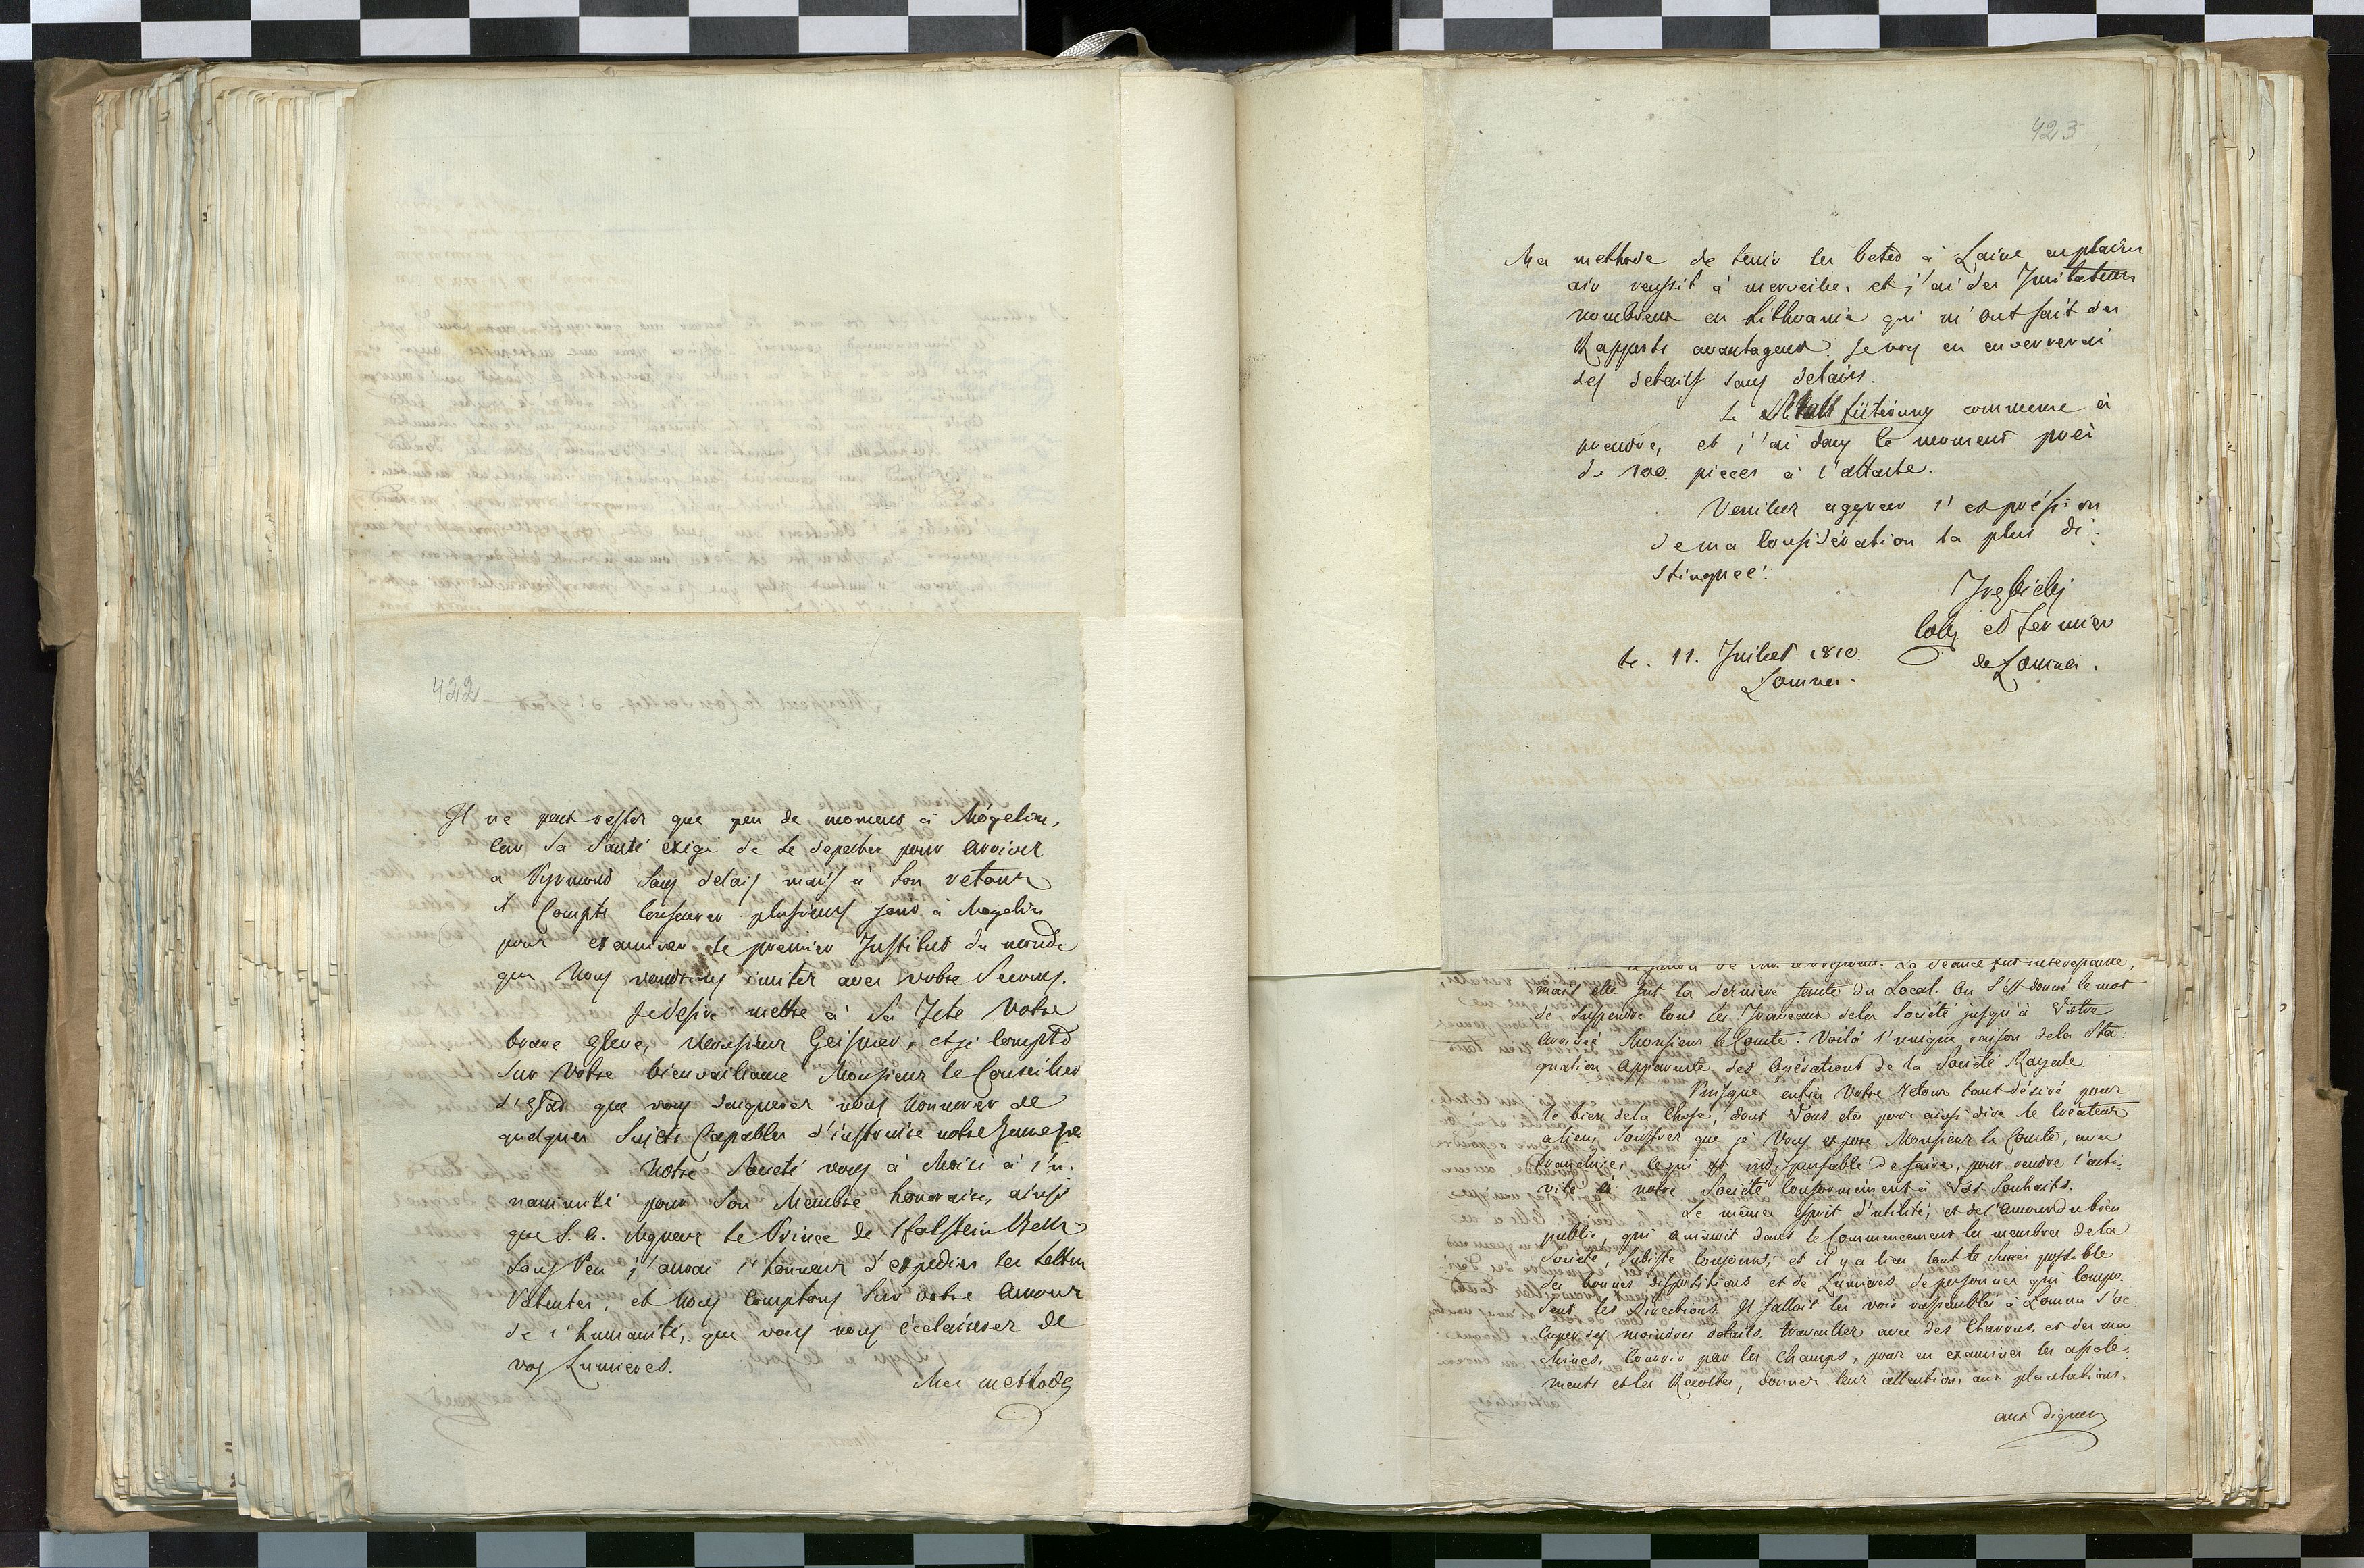 422
Il ne peut rester que peu de momens à Mögelin,
Car Sa Santé exige de Se depecher pour arriver
a Pyrmond Sans delais, mais a Son retour
il Compte Consacrer plusieurs jour à Mogelin
pour examiner le premier Institut du monde
que Nous voudrions imiter avec votre Secours.
Je desire mettre à Sa Tete Votre
brave Eleve, Monsieur Geisner, et je Compte
Sur Votre bienvaillance Monsieur le Conseiller
d'Etat que vous daignerer nous honnorer de
quelques Sujets Capables d'instruire notre
Notre Societé vous à Choisi à l'u-
nanimité pour Son Membre honoraire, ainsi
que S. A. le Prince de Holstein Beck
Sous Peu j'aurai l'honneur d'expedier les Lettres
Patentes, et Nous Comptons Sur votre Amour
de l'humanité, que vous nous éclairerer de
vos Lumieres.
Ma methode
423
Ma methode de tenir les betes à Laine en plain
air reussit à merveille, et j'ai des Imitateurs
nombreux en Lithvanie qui m'ont fait des
Rapports avantageux. Je vous en enverrerai
des details Sans delais.
Le Stallfütterung commence à
prendre, et j'ai dans le moment près
de 100. pieces à l'attache.
Veuiller agreer l'expréssion
de ma Consideration la plus di-
stinguee.
Le. 11. Juillet 1810.
et Fermier
Lomna.
de Lomna.
La Séance fut interessante,
mais elle fut la derniere faute du Local. On s'est donné le mot
de Suspendre tous les Travaux de la Societé jusqu'à Votre
Arrivée Monsieur le Comte. Voilà l'unique raison de la Sta-
gnation Apparente des Operations de la Societé Royale.
Puisque enfin Votre retour tant désiré pour
le bien de la Chose, dont Vous etes pour ainsi dire le Créateur
a lieu, Souffrer que je Vous expose Monsieur le Comte, avec
franchise, ce qui est indispensable de faire, pour rendre l'acti-
vité à notre Societé Conformément à Vos Souhaits.
Le même esprit d'utilité, et de l'amour du bien
public, qui animoit dans le Commencement les membres de la
Societé, Subsiste toujours; et il y a lieu tout le Succès possible
des bonnes dispositions et de Lumieres de personnes qui Compo-
sent les Directions. Il falloit les voir rassemblés à Lomna s'oc-
cuper des moindres details, travailler avec des Charrues, et des ma-
chines, Courrir par les Champs, pour en examiner les assole-
ments et les Recoltes, donner leur attention aux plantations,
aux digues